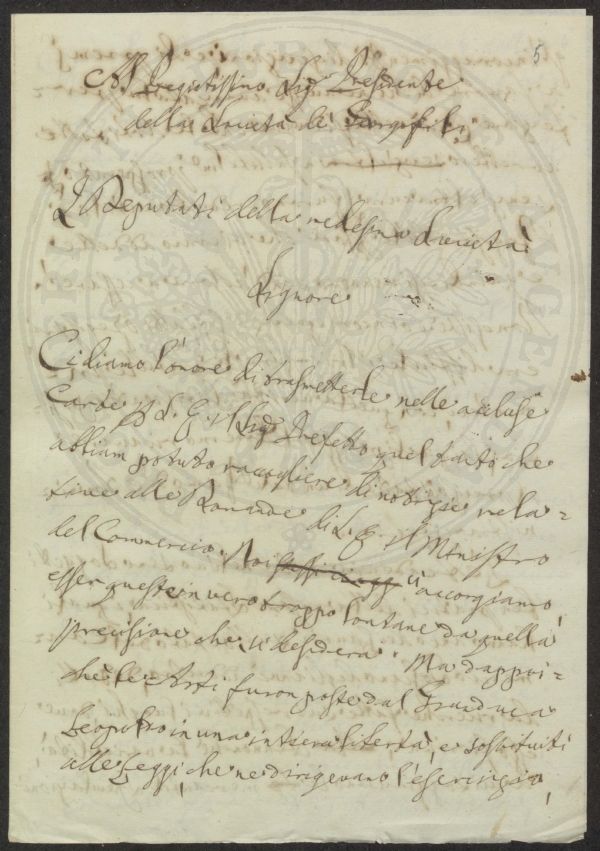 5
Al Pregiatissimo Sig.r Presidente
della Società de' Georgofili
I Deputati della medesima Società
Signore
Ci diamo l'onore di trasmetterle nelle accluse
Carte p. S. E. il Sig. Prefetto quel tanto che
abbiam potuto raccogliere di notizie rela=
tive alle Domande di S. E. il Ministro
del Commercio. Noi ci accorgiamo
esser queste in vero troppo lontane da quella
precisione che si desidera. Ma dappoi=
che le Arti furon poste dal Granduca
Leopoldo in una intiera libertà, e sostituiti
alle Leggi, che ne dirigevano l'esercizio,